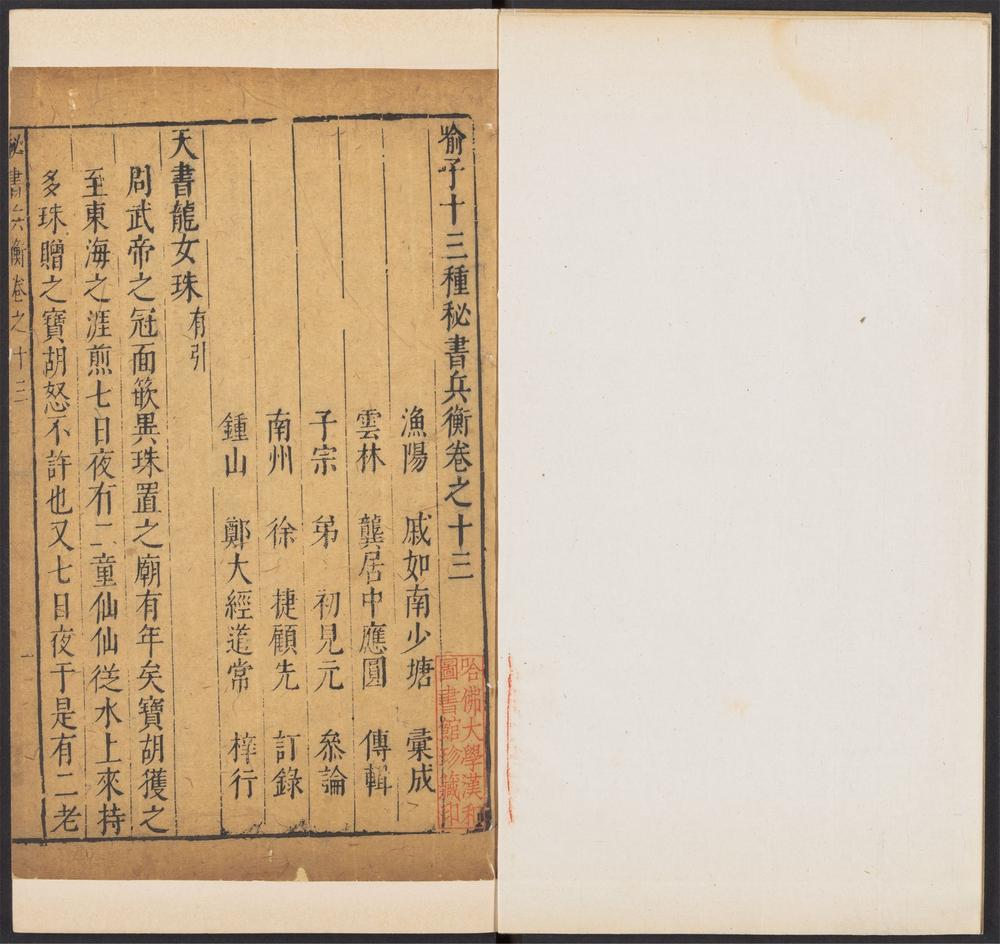 喻子十三種秘書兵衡卷之十三
漁陽 戚如南少塘 彙成
雲林 龔居中應圓 傳輯
子宗 弟 初見元 叅論
南州 徐 捷顧先 訂錄
鍾山 鄭大經道常 梓行
天書龍女珠 有引
周武帝之冠面篏異珠置之廟有年矣寶胡獲之
至東海之涯煎七日夜有二童仙仙從水上來持
多珠贈之寶胡怒不許也又七日夜于是有二老
秘書兵衡卷之十三
一
哈佛大學漢和
圖書館珍藏印